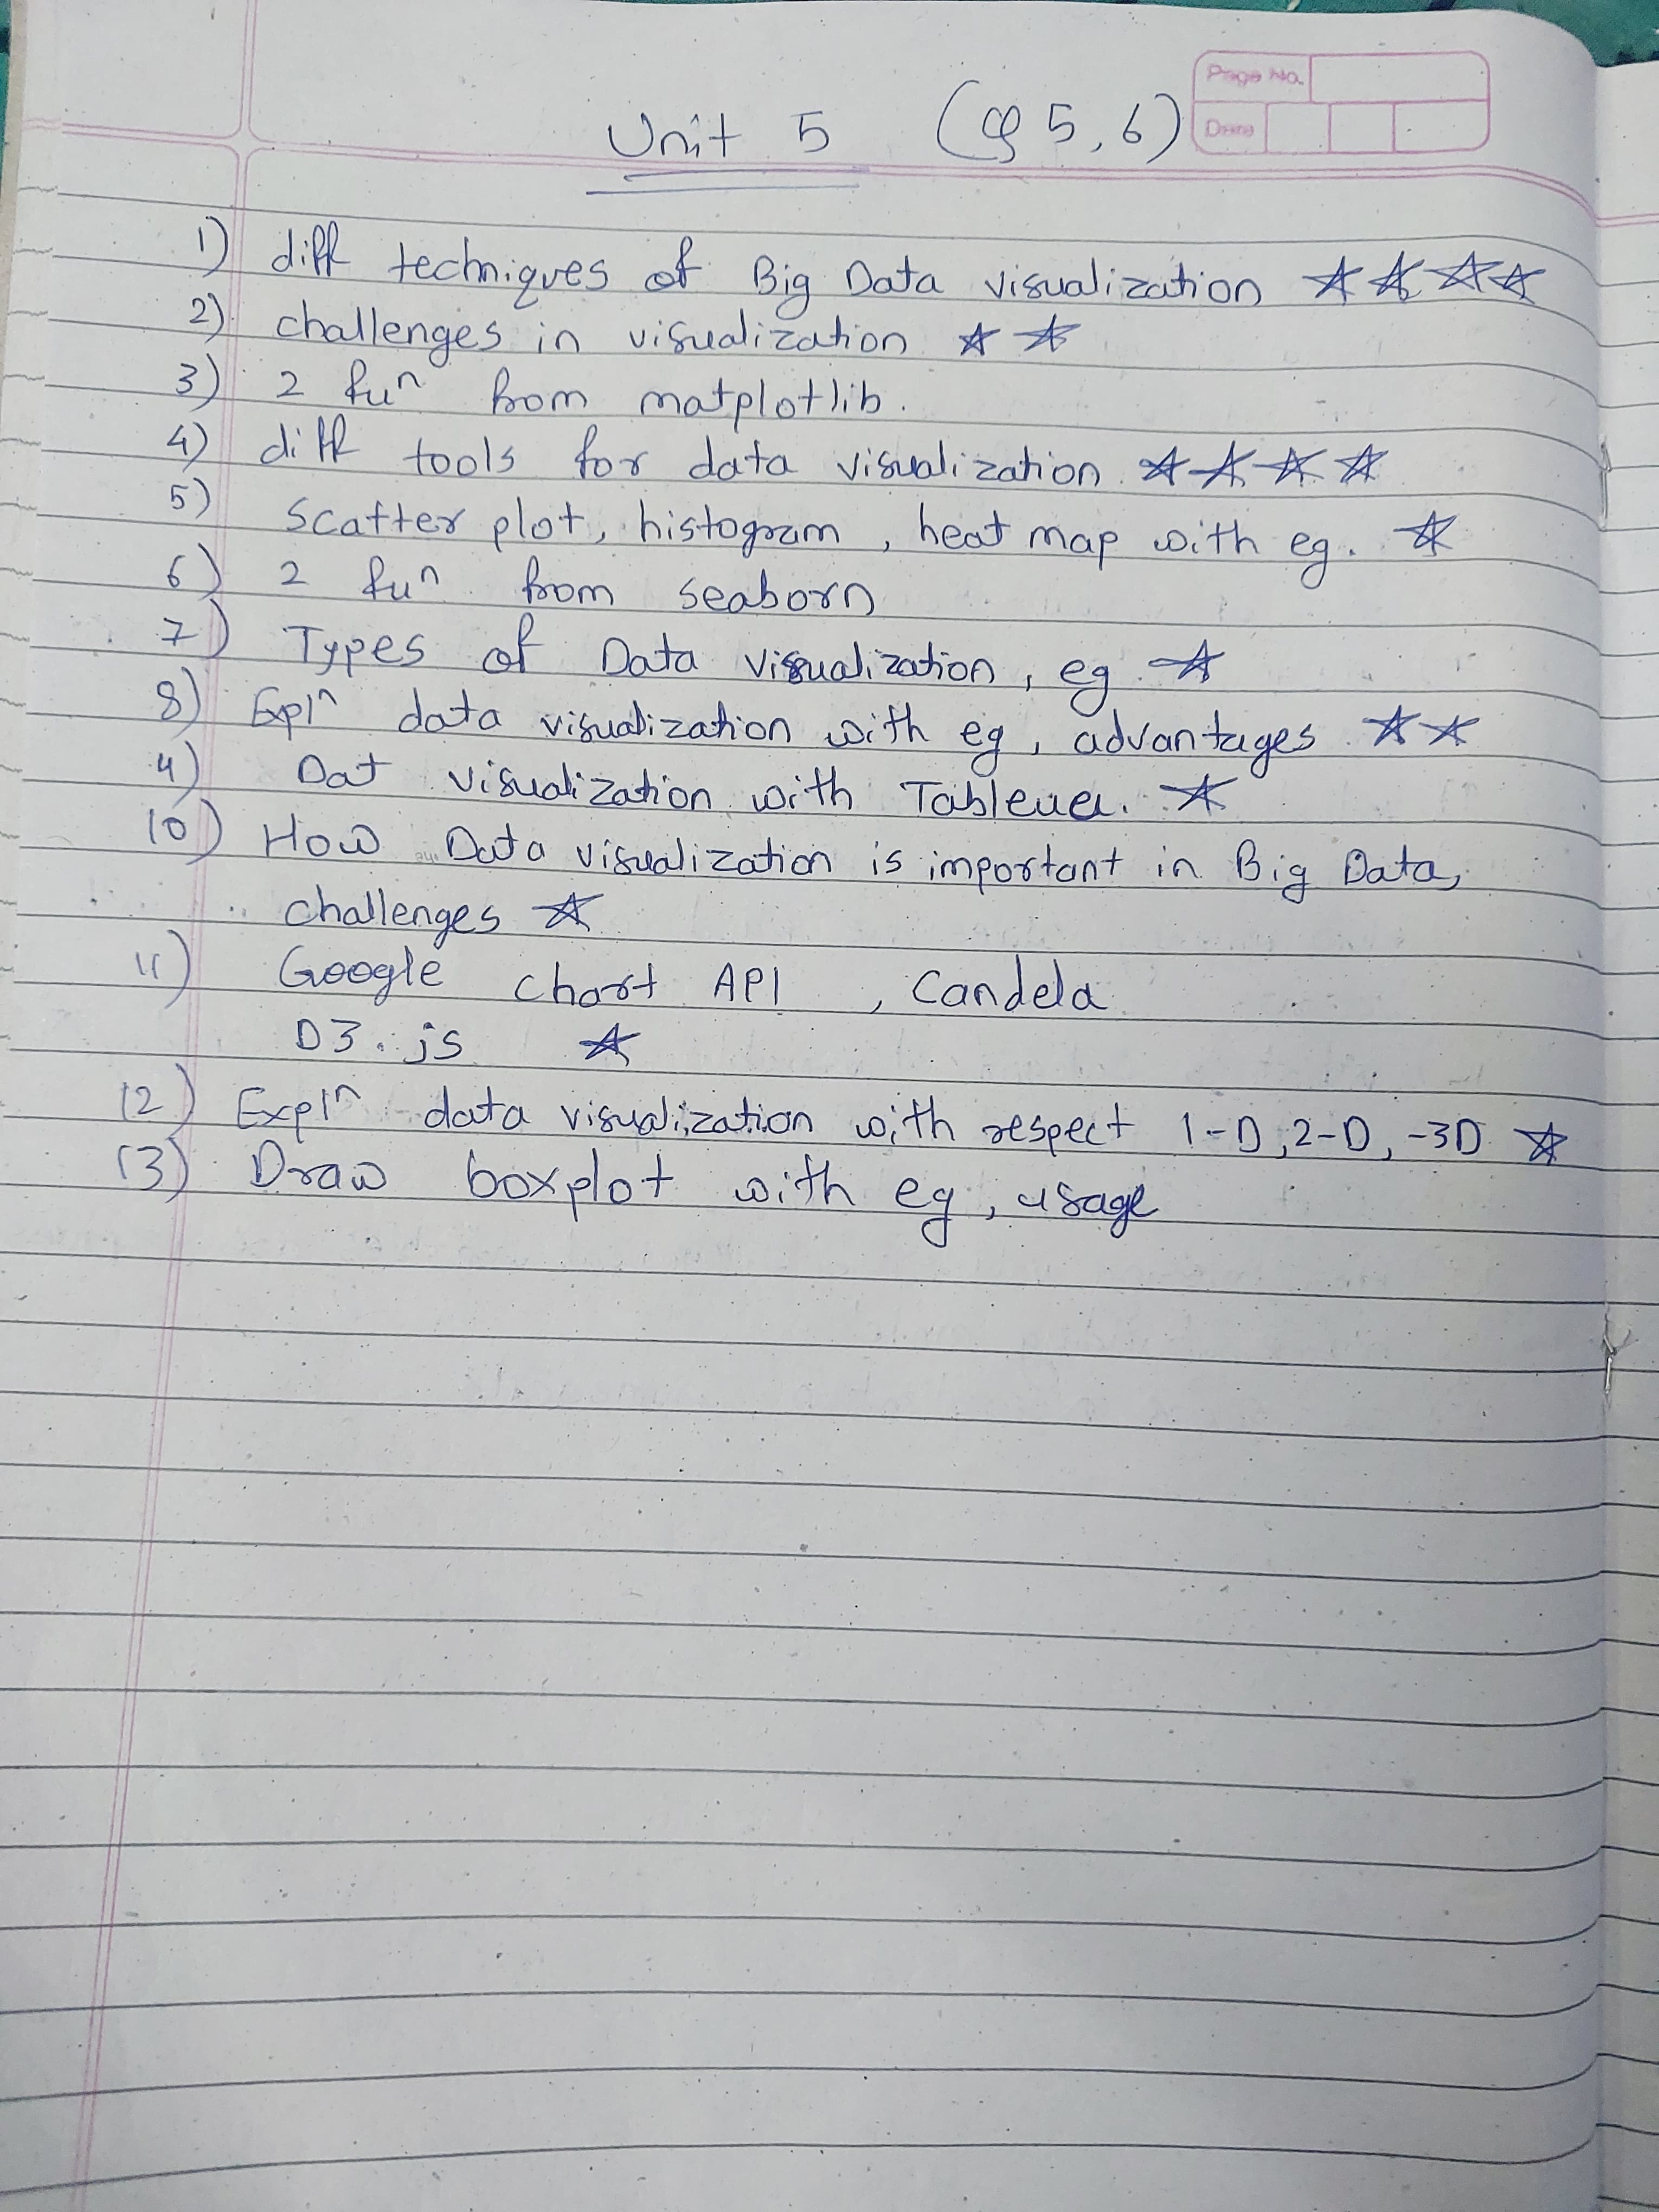 Page No.
Date
Unit 5 (Q 5, 6)
1) diff techniques of Big Data visualization ☆☆☆☆
2) challenges in visualization ☆☆
3) 2 fuⁿ from matplotlib.
4) diff tools for data visualization ☆☆☆☆
5) Scatter plot, histogram, heat map with eg. ☆
6) 2 fuⁿ from seaborn
7) Types of Data visualization, eg ☆
8) Explⁿ data visualization with eg, advantages ☆☆
9) Dat visualization with Tableua. ☆
10) How Data visualization is important in Big Data,
challenges ☆
11) Google Chart API, Candela
D3.js ☆
12) Explⁿ data visualization with respect 1-D, 2-D, -3D ☆
13) Draw boxplot with eg, usage